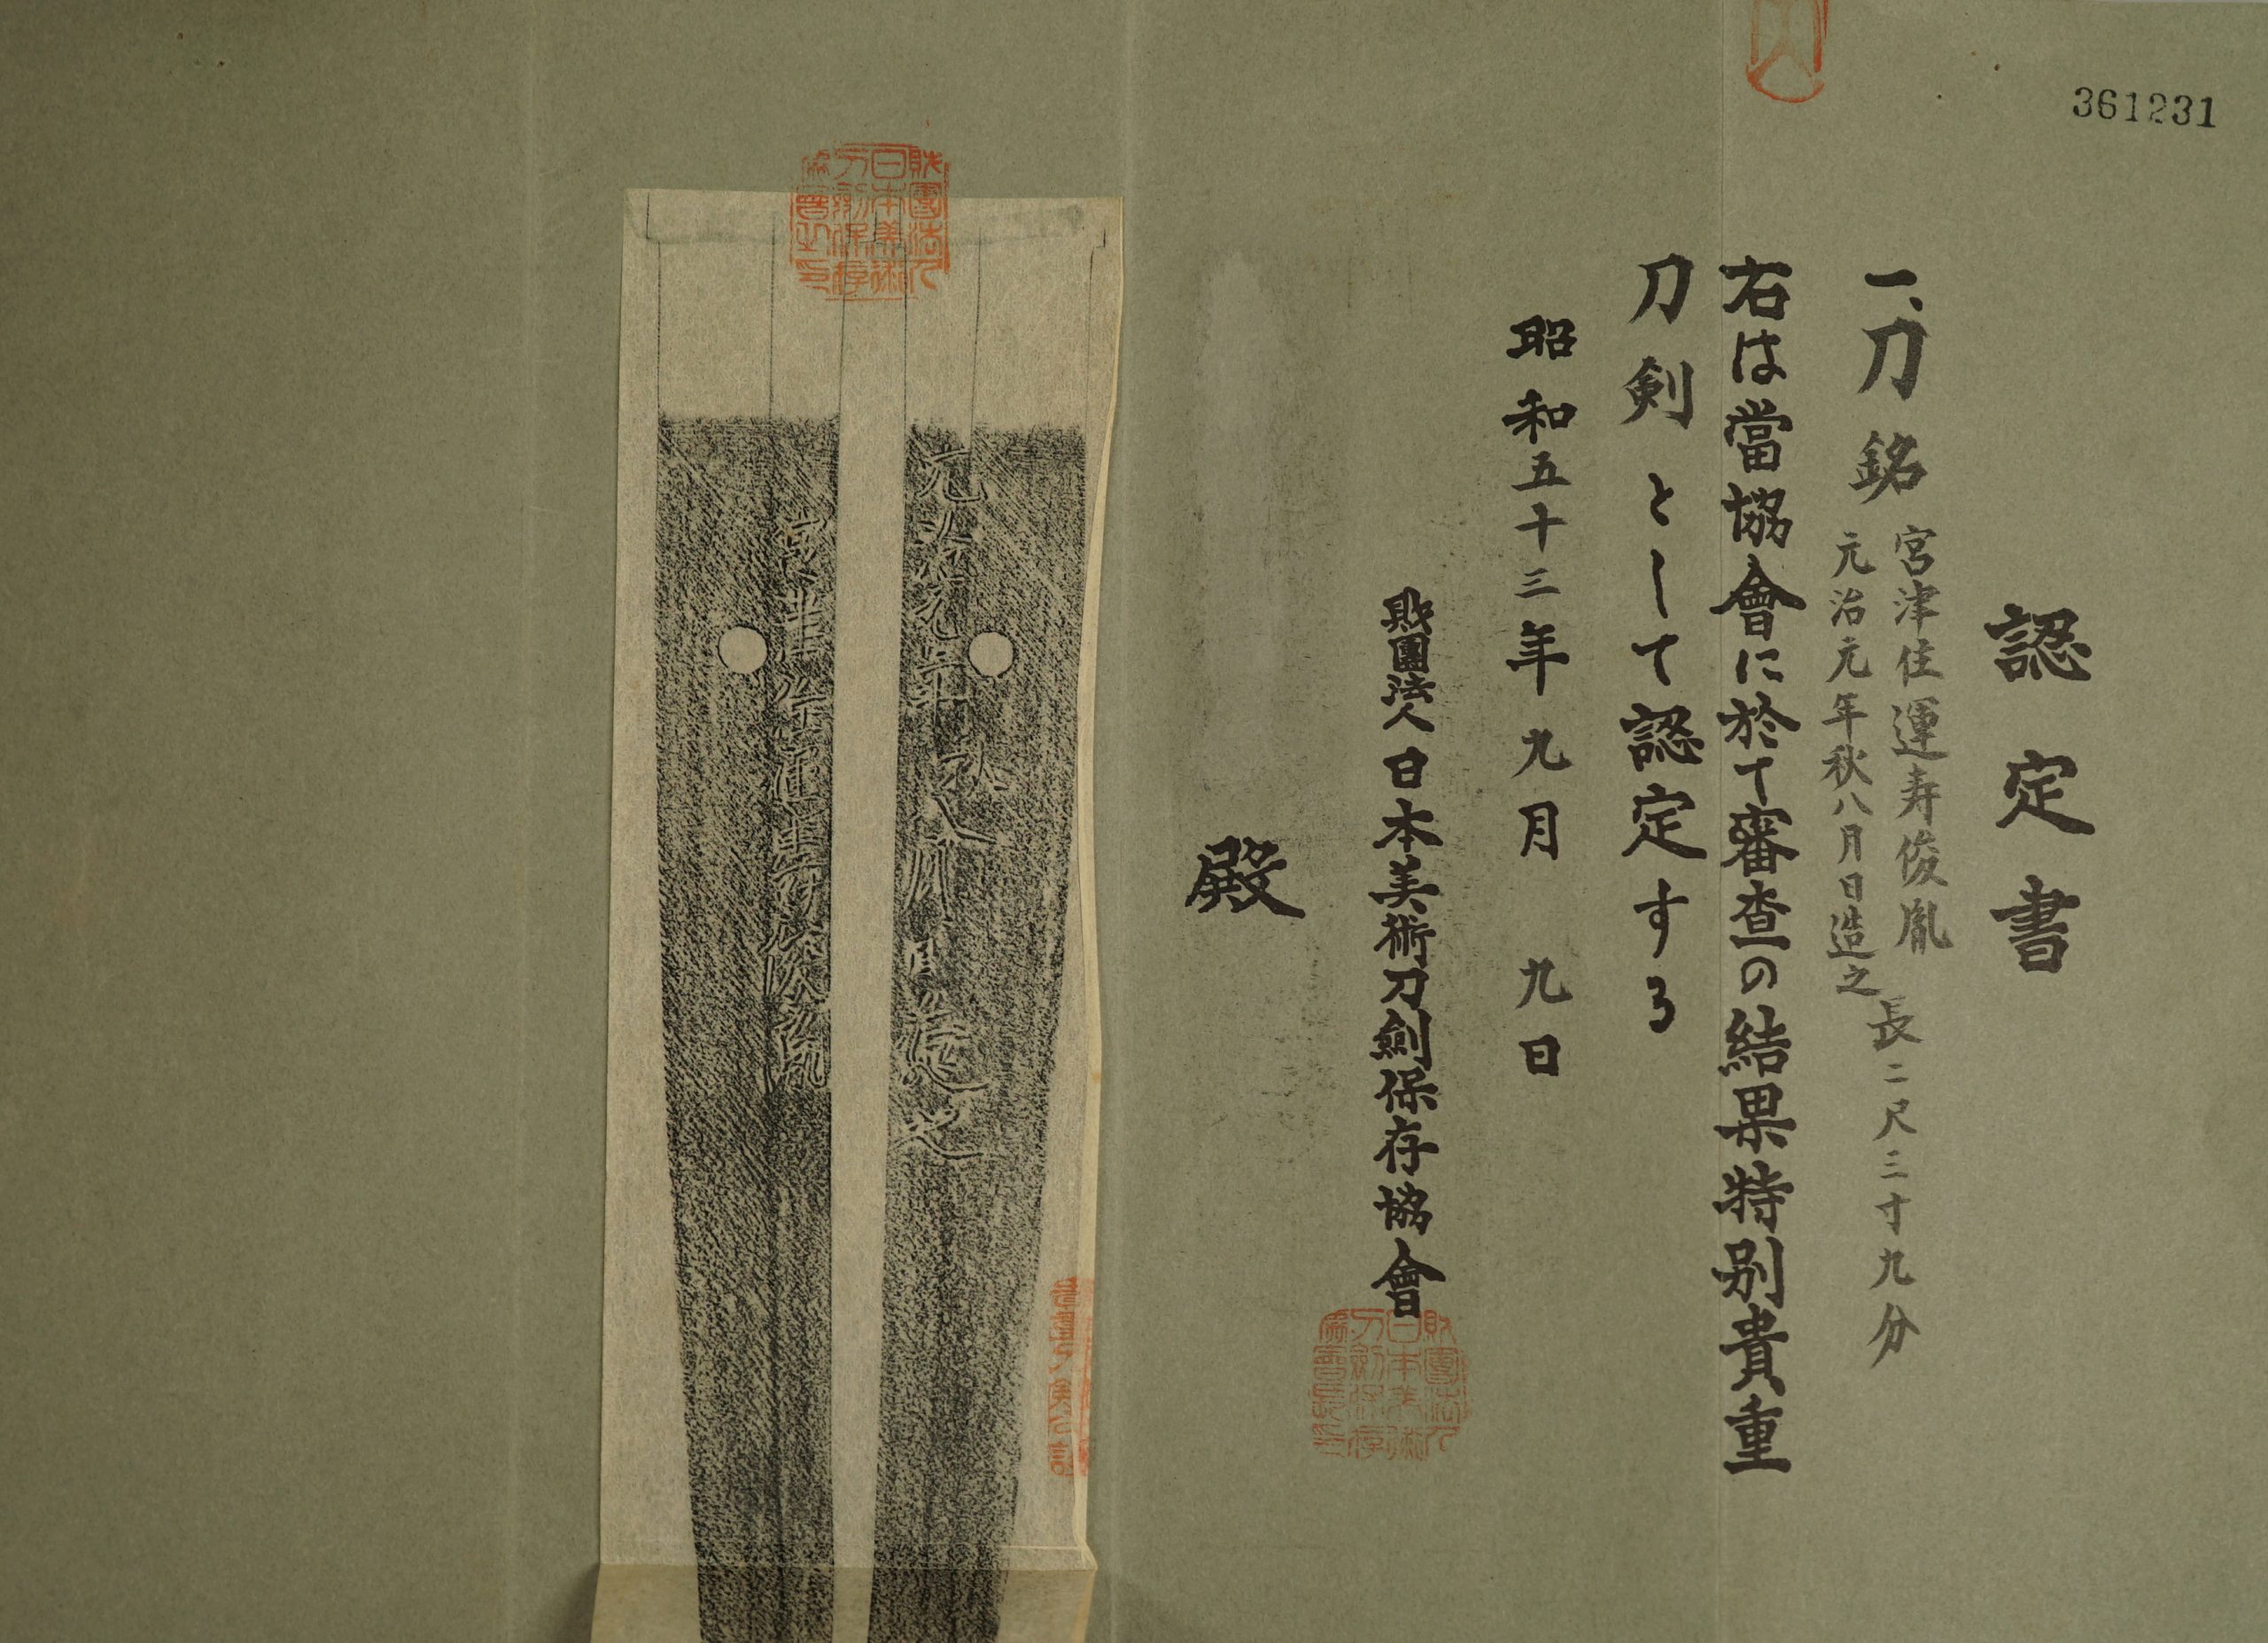 361231
認定書
一、刀 銘 宮津住運寿俊胤
元治元年秋八月日造之
長二尺三寸九分
右は當協會に於て審査の結果特別貴重
刀剣として認定する
昭和五十三年九月 九日
財團法人日本美術刀剣保存協會
殿
財團法人
日本美術
刀剣保存
協會長之印
財團法人
日本美術
刀剣保存
協會之印
元治元年秋八月日造之
宮津住運寿俊胤